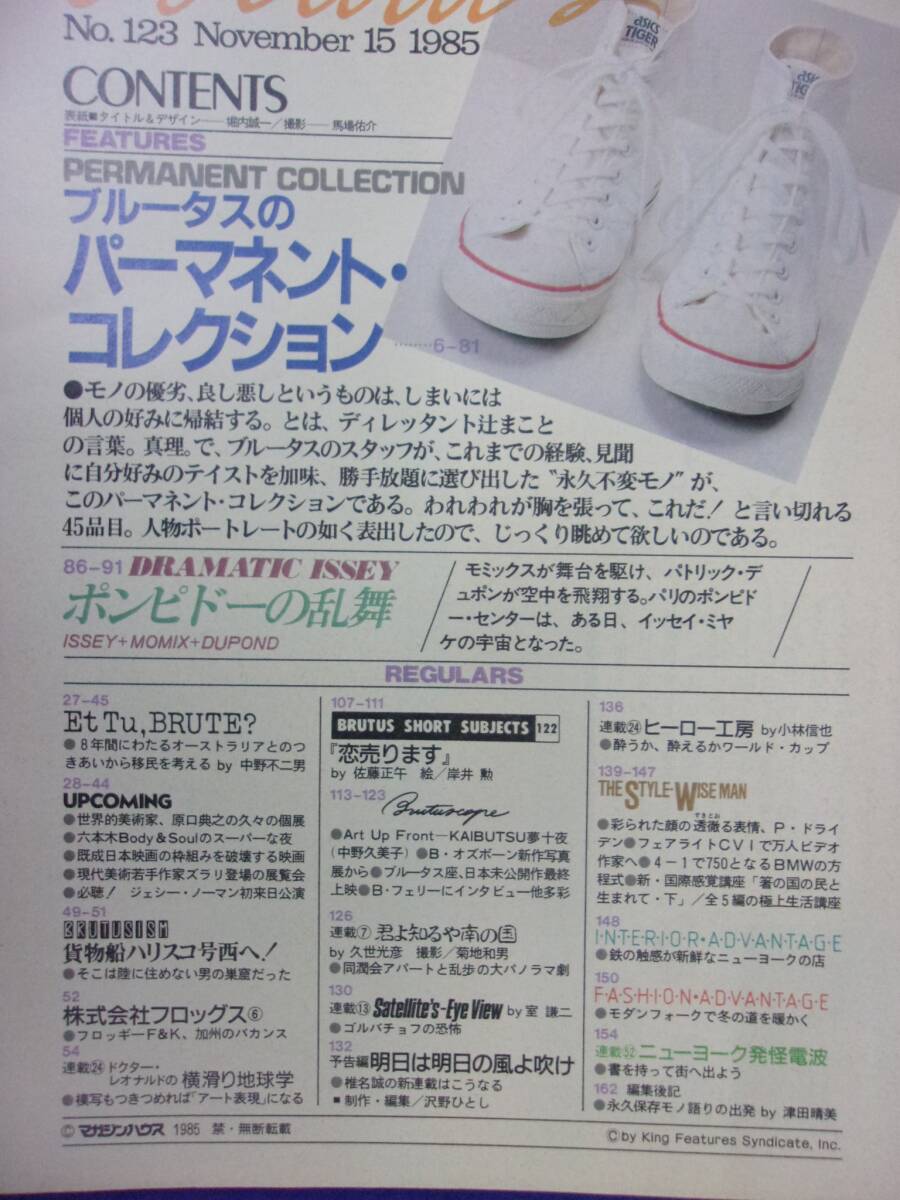 No. 123 November 15 1985
asics
TIGER
CONTENTS
表紙■タイトル&デザイン──堀内誠一/撮影──馬場佑介
FEATURES
PERMANENT COLLECTION
ブルータスの
パーマネント・
コレクション………6-81
●モノの優劣、良し悪しというものは、しまいには
個人の好みに帰結する。とは、ディレッタント辻まこと
の言葉。真理。で、ブルータスのスタッフが、これまでの経験、見聞
に自分好みのテイストを加味、勝手放題に選び出した〝永久不変モノ〟が、
このパーマネント・コレクションである。われわれが胸を張って、これだ!と言い切れる
45品目。人物ポートレートの如く表出したので、じっくり眺めて欲しいのである。
86-91 DRAMATIC ISSEY
ポンピドーの乱舞
ISSEY+MOMIX+DUPOND
モミックスが舞台を駆け、パトリック・デ
ュポンが空中を飛翔する。パリのポンピド
ー・センターは、ある日、イッセイ・ミヤ
ケの宇宙となった。
REGULARS
27-45
Et Tu, BRUTE?
●8年間にわたるオーストラリアとのつ
きあいから移民を考える by 中野不二男
28-44
UPCOMING
●世界的美術家、原口典之の久々の個展
●六本木Body&Soulのスーパーな夜
●既成日本映画の枠組みを破壊する映画
●現代美術若手作家ズラリ登場の展覧会
●必聴! ジェシー・ノーマン初来日公演
49-51
BRUTUSISM
貨物船ハリスコ号西へ!
●そこは陸に住めない男の巣窟だった
52
株式会社フロッグス⑥
●フロッギーF&K、加州のバカンス
54
連載㉔ドクター・レオナルドの 横滑り地球学
●模写もつきつめれば「アート表現」になる
107-111
BRUTUS SHORT SUBJECTS 122
『恋売ります』
by 佐藤正午 絵/岸井 勲
113-123
Brutuscope
●Art Up Front—KAIBUTSU夢十夜
(中野久美子)●B・オズボーン新作写真
展から●ブルータス座、日本未公開作最終
上映●B・フェリーにインタビュー他多彩
126
連載⑦ 君よ知るや南の国
by 久世光彦 撮影/菊地和男
●同潤会アパートと乱歩の大パノラマ劇
130
連載⑬ Satellite's-Eye View by 室 謙二
●ゴルバチョフの恐怖
132
予告編 明日は明日の風よ吹け
●椎名誠の新連載はこうなる
■制作・編集/沢野ひとし
136
連載㉔ ヒーロー工房 by小林信也
●酔うか、酔えるかワールド・カップ
139-147
THE STYLE-WISE MAN
●彩られた顔の透徹る表情、P・ドライ
デン●フェアライトCVIで万人ビデオ
作家へ●4-1で750となるBMWの方
程式●新・国際感覚講座「箸の国の民と
生まれて・下」/全5編の極上生活講座
148
INTERIOR・ADVANTAGE
●鉄の触感が新鮮なニューヨークの店
150
FASHION・ADVANTAGE
●モダンフォークで冬の道を暖かく
154
連載52 ニューヨーク発怪電波
●書を持って街へ出よう
162 編集後記
●永久保存モノ語りの出発 by 津田晴美
© マガジンハウス 1985 禁・無断転載
© by King Features Syndicate, Inc.